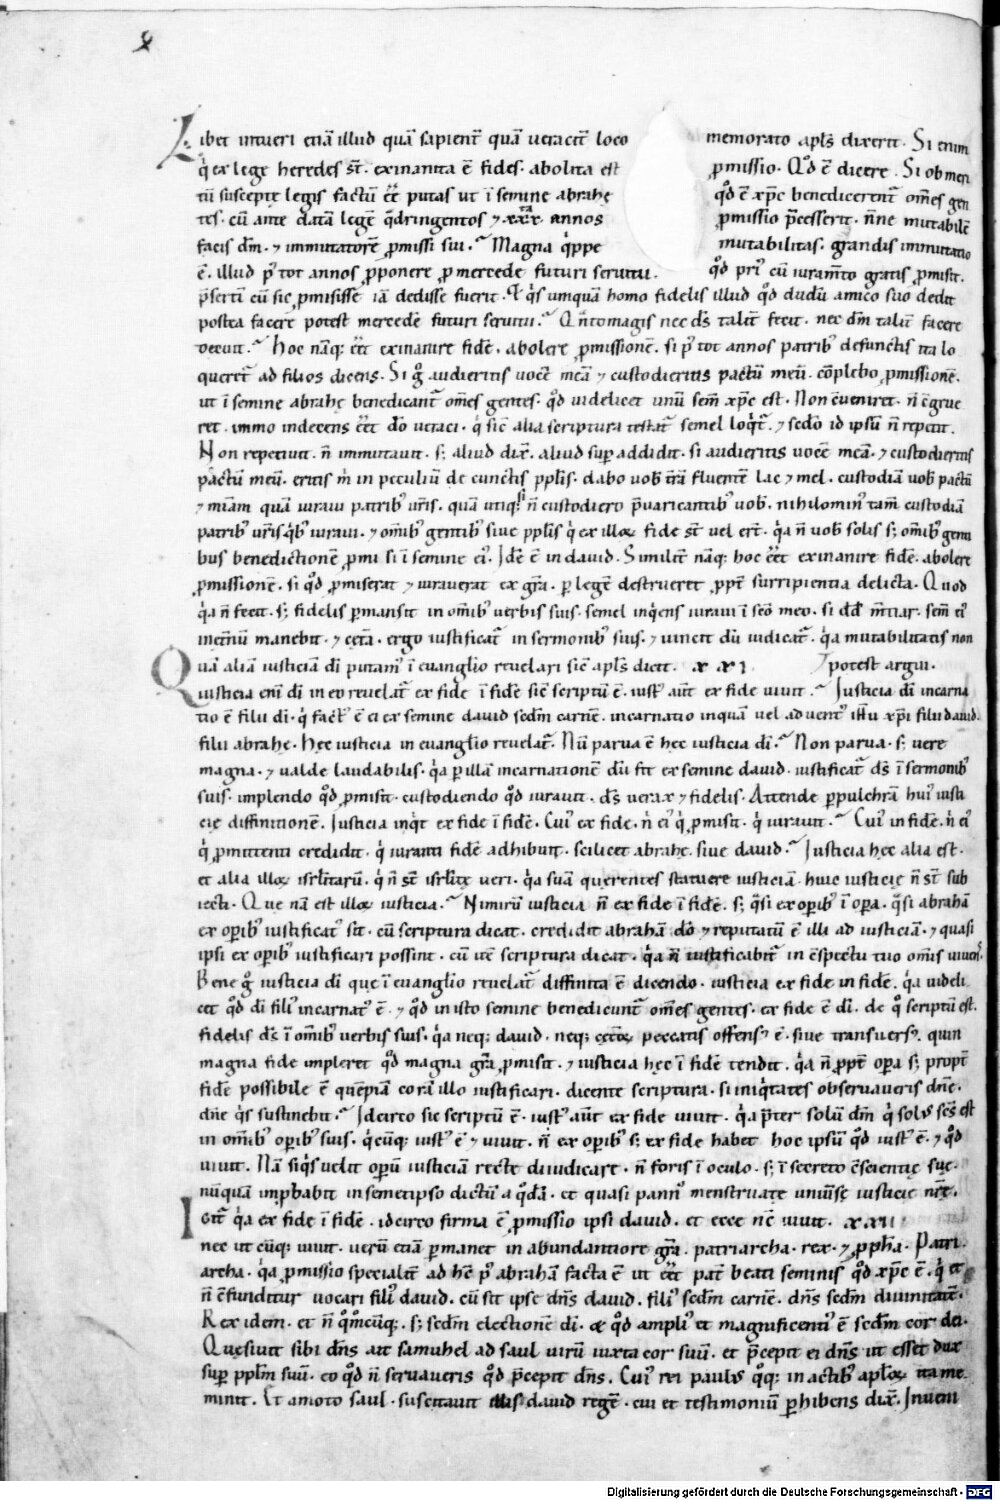 Libet intueri etiā illud quā sapient̄ quā veracit̄ loco memorato apl̄s dixerit. Si enim
q̇ ex lege heredes st̄. exinanita ē fides. abolita est ꝓmissio. Qd̄ ē dicere. Si ob meri
tū susceptę legis factū eē putas ut ī semine abrahę qd̄ ē xp̄c benedicerent̄ om̄s gen
tes. cū ante datā legē q̄dringentos ⁊ xxx annos ꝓmissio p̄cesserit. nn̄e mutabilē
facis dm̄. ⁊ immutatorē ꝓmissi sui. Magna q̇ppe mutabilitas. grandis immutatio
ē. illud pꝰ tot annos ꝓponere ꝓ mercede futuri servitii. qd̄ priꝰ cū iuram̄to gratis ꝓmisit.
p̄sertī cū sic ꝓmisisse iā dedisse fuerit. Et q̇s umquā homo fidelis illud qd̄ dudū amico suo dedit
postea facere potest mercedē futuri servitii. Qn̄tomagis nec ds̄ talit̄ fecit. nec dm̄ talit̄ facere
decuit. Hoc nāq; eēt exinanire fidē. abolere ꝓmissionē. si pꝰ tot annos patribꝰ defunctis ita lo
queret̄ ad filios dicens. Si g̊ audieritis vocē meā ⁊ custodieritis pactū meū. cōplebo ꝓmissionē.
ut ī semine abrahę benedicant̄ om̄s gentes. qd̄ videlicet unū sem̄ xp̄c est. Non cēveniret. n̄ cēgrue
ret. immo indecens eēt dō veraci. q̇ sic̄ alia scriptura testat̄ semel loqt̄. ⁊ sedō id ipsū n̄ repetit.
Non repetivit. n̄ immutavit. s; aliud dix̄. aliud sup̄ addidit. si audieritis vocē meā. ⁊ custodieritis
pactū meū. eritis m̄ in peculiū de cunctis pplīs. dabo vob̄ trā fluentē lac ⁊ mel. custodiā vob̄ pactū
⁊ miam quā iuravi patribꝰ vr̄is. quā utiq; si n̄ custodiero p̄varicantibꝰ vob̄. nihilominꝰ tam̄ custodiā
patribꝰ vr̄is q̇bꝰ iuravi. ⁊ om̄ibꝰ gentibꝰ sive pplīs q̇ ex illoꝝ fide st̄ vel ert̄. q̇a n̄ vob̄ solis s; om̄ibꝰ genti
bus benedictionē ꝓmi si ī semine eiꝰ. Idē ē in david. Similit̄ nāq; hoc eēt exinanire fidē. abolere
ꝓmissionē. si qd̄ ꝓmiserat ⁊ iuraverat ex gr̄a. ꝑ legē destrueret ꝓpt̄ surripientia delicta. Quod
q̇a n̄ fecit. s; fidelis ꝑmansit in om̄ibꝰ verbis suis. semel inq̇ens iuravi ī scō meo. si dd̄ m̄tiar. sem̄ eiꝰ
inet̄nū manebit. ⁊ cęt̄a. ergo iustificat̄ in sermonibꝰ suis. ⁊ vincit dū iudicat̄. q̇a mutabilitatis non
Quā aliā iusticiā di putamꝰ ī evanglio revelari sic̄ apl̄s dicit. xxi. potest argui.
iusticia enī di in eo revelat̄ ex fide ī fidē sic̄ scriptū ē. iustꝰ aut̄ ex fide vivit. Iusticia di incarna
tio ē filii di. q̇ factꝰ ē ei ex semine david scdm̄ carnē. incarnatio inquā vel adventꝰ ihū xp̄i filii david.
filii abrahę. Hęc iusticia in evanglio revelat̄. Nū parva ē hęc iusticia di. Non parva. s; vere
magna. ⁊ valde laudabilis. q̇a ꝑ illā incarnationē dū fit ex semine david. iustificat̄ ds̄ ī sermonibꝰ
suis. implendo qd̄ ꝓmisit. custodiendo qd̄ iuravit. ds̄ verax ⁊ fidelis. Attende ꝑpulchrā huiꝰ iusti
cię diffinitionē. Iusticia inqt̄ ex fide ī fidē. Cuiꝰ ex fide. n̄ eiꝰ q̇ ꝓmisit. q̇ iuravit. Cuiꝰ in fidē. n̄ eiꝰ
q̇ ꝓmittenti credidit. q̇ iuranti fidē adhibuit. scilicet abrahę. sive david. Iusticia hęc alia est.
et alia illoꝝ isrl̄itarū. q̇ n̄ st̄ isrl̄itę veri. q̇a suā querentes statuere iusticiā. huic iusticię n̄ st̄ sub
iecti. Quę nā est illoꝝ iusticia. Nimirū iusticia n̄ ex fide ī fidē. s; q̇si ex opibꝰ ī opa. q̇si abrahā
ex opibꝰ iustificatꝰ sit. cū scriptura dicat. credidit abrahā dō ⁊ reputatū ē illi ad iusticiā. ⁊ quasi
ipsi ex opibꝰ iustificari possint. cū itē scriptura dicat. q̇a n̄ iustificabit̄ in cēspectu tuo om̄is vivens.
Bene g̊ iusticia di que ī evanglio revelat̄ diffinita ē dicendo. iusticia ex fide in fidē. q̇a videli
cet qd̄ di filiꝰ incarnatꝰ ē. ⁊ qd̄ in isto semine benedicunt̄ om̄s gentes. ex fide ē di. de q̊ scriptū est.
fidelis ds̄ ī om̄ibꝰ verbis suis. q̇a neq; david. neq; cęt̄oꝝ peccatis offensꝰ ē. sive transversꝰ. quin
magna fide impleret qd̄ magna gr̄a ꝓmisit. ⁊ iusticia hęc ī fidē tendit. q̇a n̄ ꝓpt̄ opa s; propt̄
fidē possibile ē quēpiā corā illo iustificari. dicente scriptura. si iniq̇tates observaveris dn̄e.
dn̄e q̇s sustinebit. Idcirco sic scriptū ē. iustꝰ aut̄ ex fide vivit. q̇a p̄ter solū dm̄ q̇ solꝰ scs̄ est
in om̄ibꝰ opibꝰ suis. q̇cūq; iustꝰ ē ⁊ vivit. n̄ ex opibꝰ s; ex fide habet hoc ipsū qd̄ iustꝰ ē. ⁊ qd̄
vivit. Nā siq̇s velit opū iusticiā recte diiudicare. n̄ foris ī oculo. s; ī secreto cēscientię suę.
nūquā imꝓbabit in semetipso dictū a q̇dā. et quasi pannꝰ menstruatę univsę iusticię nr̄ę.
Igit̄ q̇a ex fide ī fidē. idcirco firma ē ꝓmissio ipsi david. et ecce nc̄ vivit. xxii.
nec ut cūq; vivit. verū etiā ꝑmanet in abundantiore gr̄a. patriarcha. rex. ⁊ ꝓph̄a. Patri
archa. q̇a ꝓmissio specialit̄ ad hē pꝰ abrahā facta ē ut eēt pat̄ beati seminis qd̄ xp̄c ē. q̇ et
n̄ cēfunditur vocari filiꝰ david. cū sit ipse dn̄s david. filiꝰ scdm̄ carnē. dn̄s scdm̄ divinitatē.
Rex idem. et n̄ q̊m̊cūq;. s; scdm̄ electionē di. ⁊ qd̄ ampliꝰ et magnificentiꝰ ē scdm̄ cor dei.
Quęsivit sibi dn̄s ait samuhel ad saul virū iuxta cor suū. et p̄cepit ei dn̄s ut esset dux
sup̄ pplm̄ suū. eo qd̄ n̄ servaveris qd̄ p̄cepit dn̄s. Cuiꝰ rei paulꝰ q̊q; in actibꝰ apl̄oꝝ ita me
minit. Et amoto saul. suscitavit illis david regē. cui et testimoniū ꝑhibens dix̄. Inveni
Digitalisierung gefördert durch die Deutsche Forschungsgemeinschaft - DFG